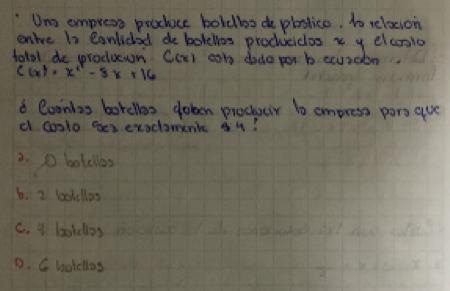 Una empresa produce botellas de plastico. la relacion
entre la Cantidad de botellas producidas x y el costo
total de produccion C(x) esta dada por la ecuacion.
C(x) = x² - 8x + 16
¿ Cuantas botellas deben producir la empresa para que
el costo sea exactamente $4?
a. 0 botellas
b. 2 botellas
C. botellas
D. 6 botellas